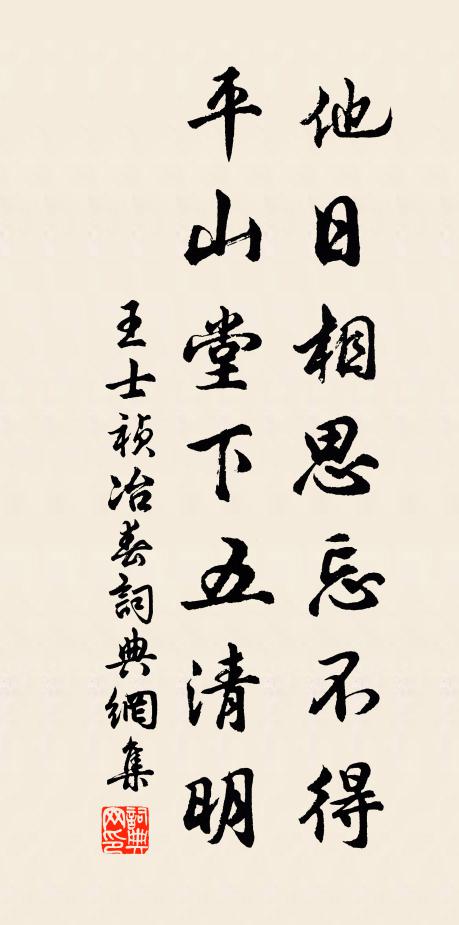 他日相思忘不得
平山堂下五清明
王士禎冶春詞典網集
詞典網印